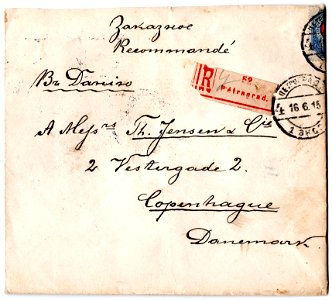 Заказное
Recommandé
Въ Данію
R
59
Petrograd.
16.6.15
A Messrs Th. Jensen & Cie
2 Vestergade 2.
Copenhague
Danemark.